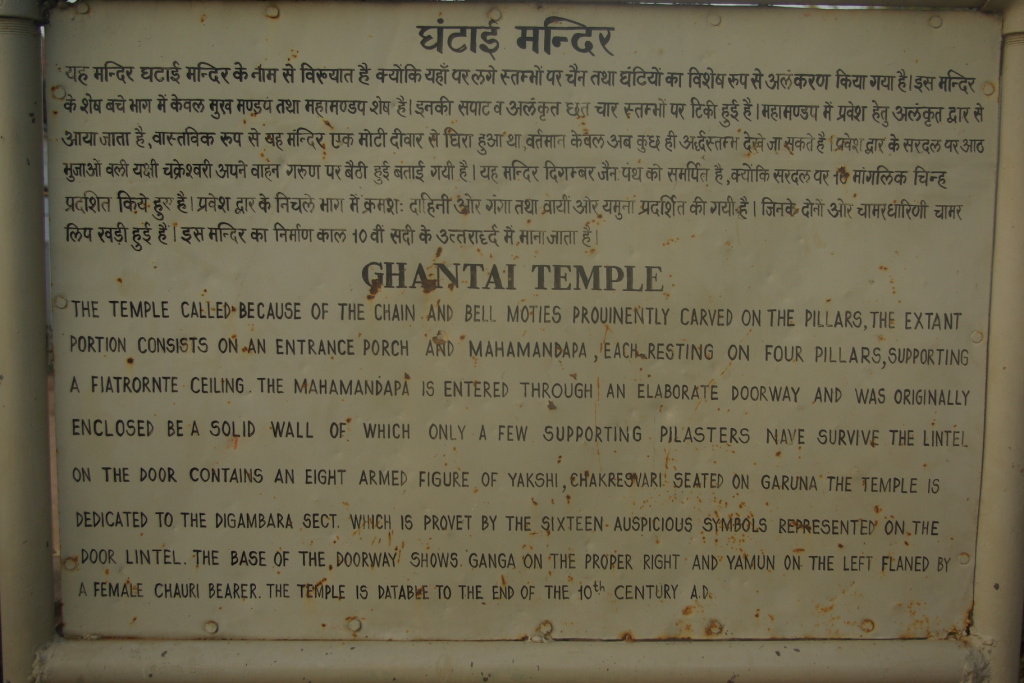 घंटाई मन्दिर
यह मन्दिर घटाई मन्दिर के नाम से विख्यात है क्योंकि यहाँ पर लगे स्तम्भों पर चैन तथा घंटियों का विशेष रुप से अलंकरण किया गया है। इस मन्दिर
के शेष बचे भाग में केवल मुख मण्डप तथा महामण्डप शेष है। इनकी सपाट व अलंकृत छत चार स्तम्भों पर टिकी हुई है। महामण्डप में प्रवेश हेतु अलंकृत द्वार से
आया जाता है, वास्तविक रूप से यह मन्दिर एक मोटी दीवार से घिरा हुआ था, वर्तमान केवल अब कुछ ही अर्द्धस्तम्भ देखे जा सकते है। प्रवेश द्वार के सरदल पर आठ
भुजाओं वली यक्षी चक्रेश्वरी अपने वाहन गरुण पर बैठी हुई बताई गयी है। यह मन्दिर दिगम्बर जैन पंथ को समर्पित है, क्योंकि सरदल पर 16 मांगलिक चिन्ह
प्रदशित किये हुए है। प्रवेश द्वार के निचले भाग में क्रमशः दाहिनी ओर गंगा तथा वायीं ओर यमुना प्रदर्शित की गयी है। जिनके दोनों ओर चामरधारिणी चामर
लिप खड़ी हुई हैं। इस मन्दिर का निर्माण काल 10 वीं सदी के उत्तरार्द्द में माना जाता है।
GHANTAI TEMPLE
THE TEMPLE CALLED BECAUSE OF THE CHAIN AND BELL MOTIES PROUINENTLY CARVED ON THE PILLARS, THE EXTANT
PORTION CONSISTS ON AN ENTRANCE PORCH AND MAHAMANDAPA, EACH RESTING ON FOUR PILLARS, SUPPORTING
A FIATRORNTE CEILING. THE MAHAMANDAPA IS ENTERED THROUGH AN ELABORATE DOORWAY AND WAS ORIGINALLY
ENCLOSED BE A SOLID WALL OF WHICH ONLY A FEW SUPPORTING PILASTERS NAVE SURVIVE THE LINTEL
ON THE DOOR CONTAINS AN EIGHT ARMED FIGURE OF YAKSHI, CHAKRESVARI SEATED ON GARUNA THE TEMPLE IS
DEDICATED TO THE DIGAMBARA SECT. WHICH IS PROVET BY THE SIXTEEN AUSPICIOUS SYMBOLS REPRESENTED ON THE
DOOR LINTEL. THE BASE OF THE DOORWAY SHOWS GANGA ON THE PROPER RIGHT AND YAMUN ON THE LEFT FLANED BY
A FEMALE CHAURI BEARER. THE TEMPLE IS DATABLE TO THE END OF THE 10th CENTURY A.D.